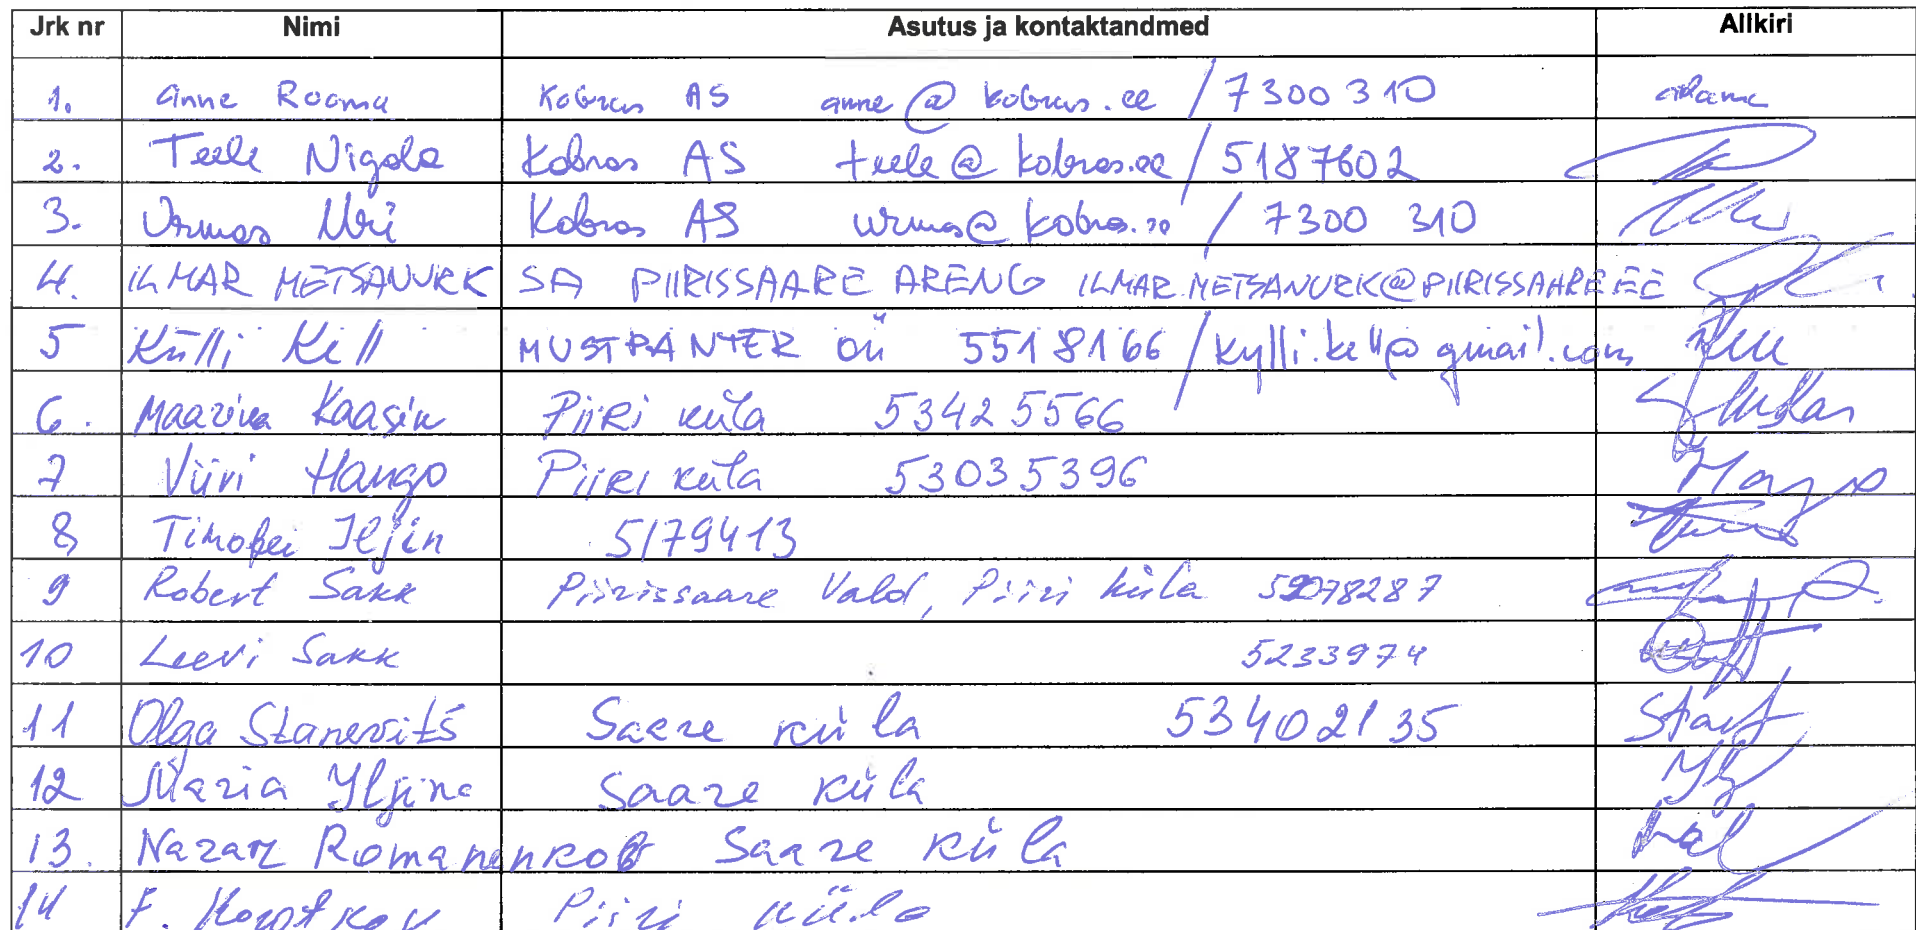 Jrk nr Nimi Asutus ja kontaktandmed Allkiri
1. Anne Rooma Kobras AS anne@kobras.ee / 7300 310
2. Teele Nigola Kobras AS teele@kobras.ee / 5187602
3. Urmas Uri Kobras AS urmas@kobras.ee / 7300 310
4. ILMAR METSANURK SA PIIRISSAARE ARENG ILMAR.METSANURK@PIIRISSAARE.EE
5 Külli Kell MUSTPANTER OÜ 5518166 / kylli.kell@gmail.com
6. Maariva Kaasik Piiri küla 53425566
7 Viivi Hango Piiri küla 53035396
8 Timofei Iljin 5179413
9 Robert Sakk Piirissaare Vald, Piiri küla
10 Leevi Sakk 5233974
11 Olga Stanevitš Saare küla 53402135
12 Maria Iljina Saare küla
13. Nazar Romanenkov Saare küla
14 F. Korotkov Piiri küla